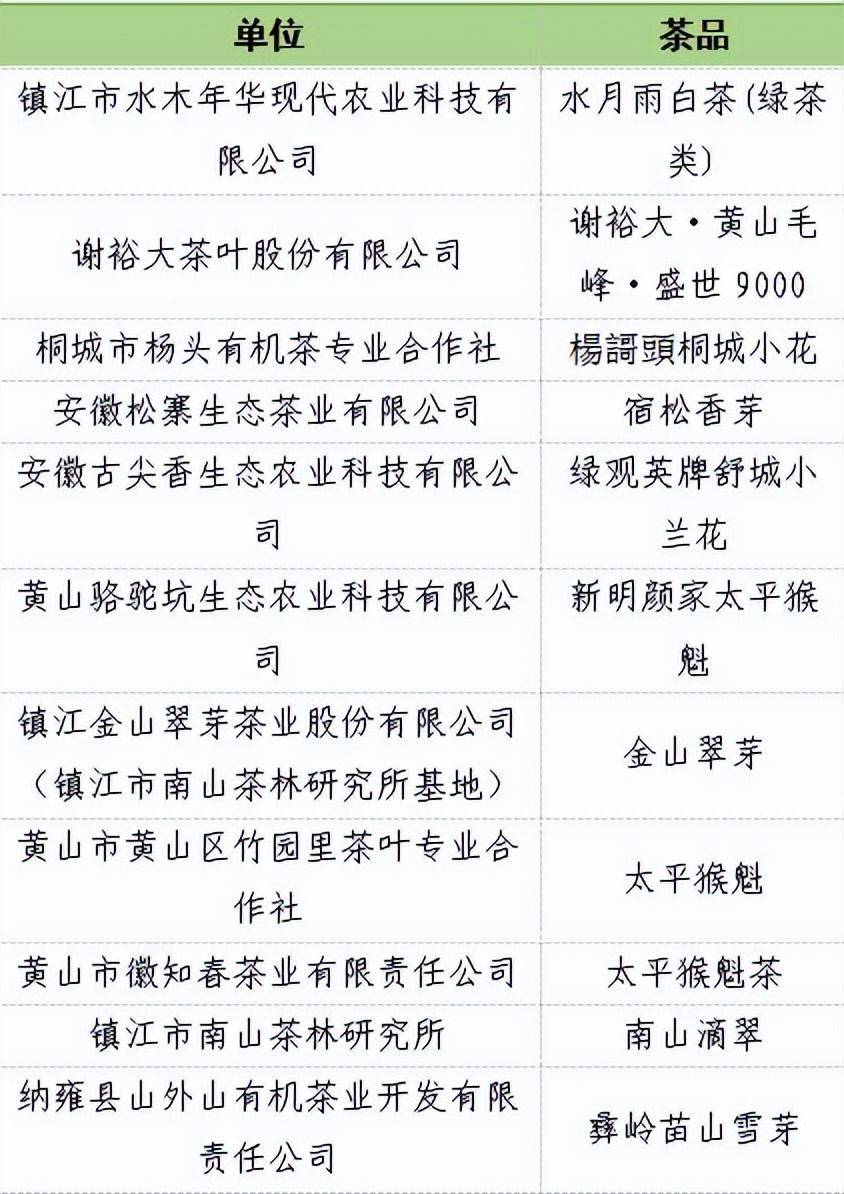 单位 茶品
镇江市水木年华现代农业科技有
限公司
水月雨白茶(绿茶
类)
谢裕大茶叶股份有限公司
谢裕大·黄山毛
峰·盛世9000
桐城市杨头有机茶专业合作社
楊謌頭桐城小花
安徽松寨生态茶业有限公司
宿松香芽
安徽古尖香生态农业科技有限公
司
绿观英牌舒城小
兰花
黄山骆驼坑生态农业科技有限公
司
新明颜家太平猴
魁
镇江金山翠芽茶业股份有限公司
（镇江市南山茶林研究所基地）
金山翠芽
黄山市黄山区竹园里茶叶专业合
作社
太平猴魁
黄山市徽知春茶业有限责任公司
太平猴魁茶
镇江市南山茶林研究所
南山滴翠
纳雍县山外山有机茶业开发有限
责任公司
彝岭苗山雪芽